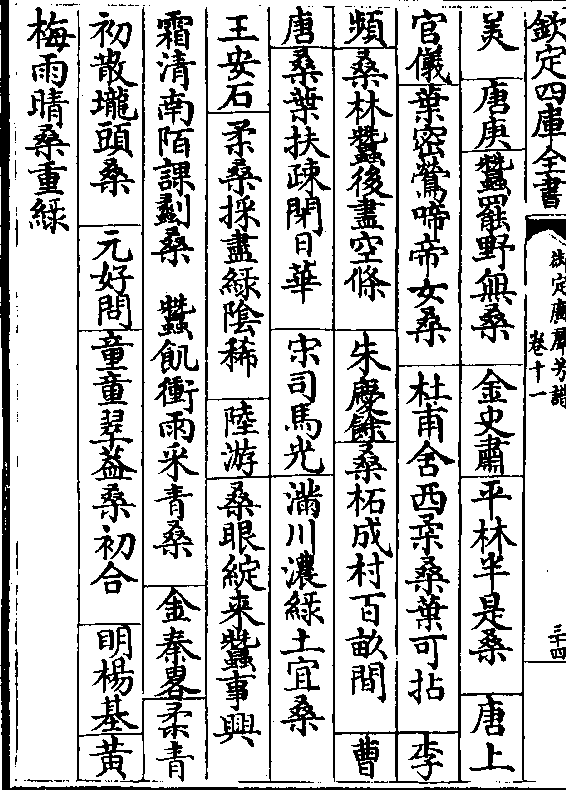 欽定四庫全書
御定廣羣芳譜
卷十一
三十四
美　唐庚蠶罷野無桑　金史肅平林半是桑　唐上
官儀葉密鶯啼帝女桑　杜甫舍西柔桑葉可拈　李
頻桑林蠶後盡空條　朱慶餘桑柘成村百畝間　曹
唐桑葉扶疎閉日華　宋司馬光滿川濃綠土宜桑
王安石柔桑採盡綠陰稀　陸游桑眼綻來蠶事興
霜清南陌課劚桑　蠶飢衝雨采青桑　金秦畧柔青
初散壠頭桑　元好問童童翠蓋桑初合　明楊基黃
梅雨晴桑重綠